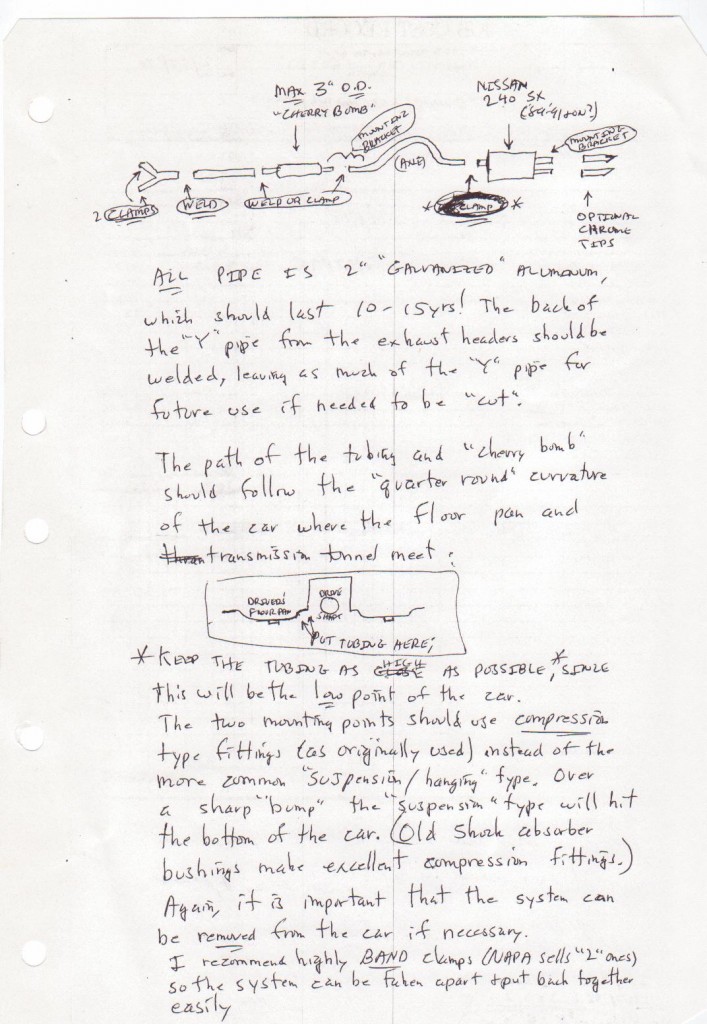 MAX 3" O.D.
"CHERRY BOMB"
NISSAN
240 SX
('89-'91 ON?)
MOUNTING
BRACKET
MOUNTING
BRACKET
(AXLE)
2 CLAMPS
WELD
WELD OR CLAMP
* CLAMP *
OPTIONAL
CHROME
TIPS
ALL PIPE IS 2" "GALVANIZED" ALUMINUM,
which should last 10-15yrs! The back of
the "Y" pipe from the exhaust headers should be
welded, leaving as much of the "Y" pipe for
future use if needed to be "cut".
The path of the tubing and "cherry bomb"
should follow the "quarter round" curvature
of the car where the floor pan and
transmission tunnel meet:
DRIVER'S
FLOORPAN
DRIVE
SHAFT
PUT TUBING HERE;
* KEEP THE TUBING AS HIGH AS POSSIBLE,* SINCE
this will be the low point of the car.
The two mounting points should use compression
type fittings (as originally used) instead of the
more common "suspension/hanging" type. Over
a sharp "bump" the "suspension" type will hit
the bottom of the car. (Old Shock absorber
bushings make excellent compression fittings.)
Again, it is important that the system can
be removed from the car if necessary.
I recommend highly BAND clamps (NAPA sells "2" ones)
so the system can be taken apart & put back together
easily